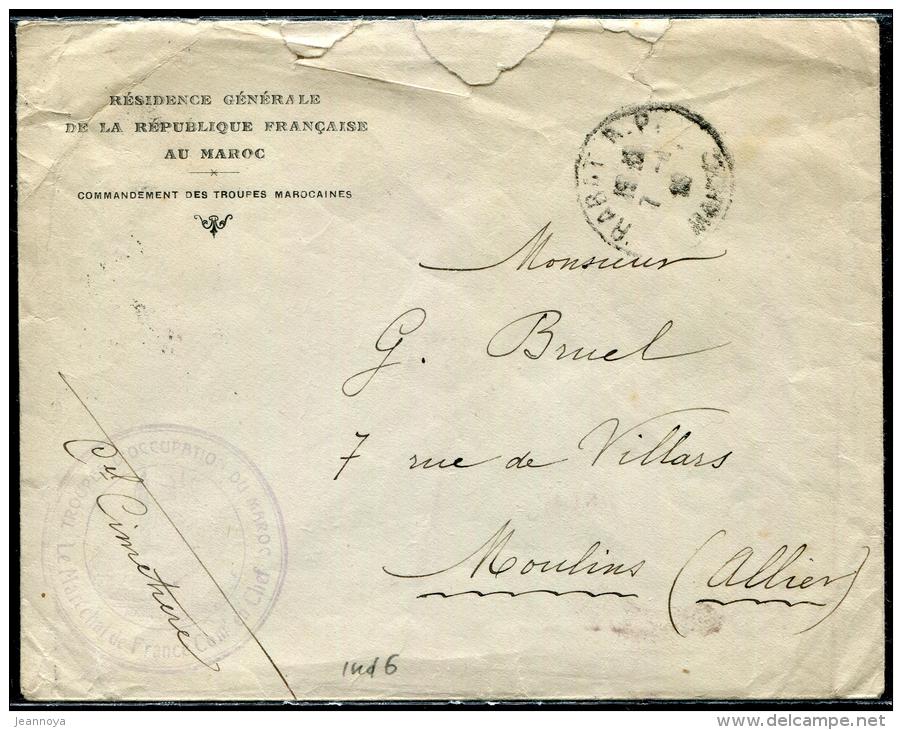 RÉSIDENCE GÉNÉRALE
DE LA RÉPUBLIQUE FRANÇAISE
AU MAROC
COMMANDEMENT DES TROUPES MAROCAINES
RABAT R.P. MAROC
7
Monsieur
G. Bruel
7 rue de Villars
Moulins (Allier)
TROUPES D'OCCUPATION DU MAROC
Le Maréchal de France Comt en Chef
Cimetière
ind 6
jeannoya
delcampe.net